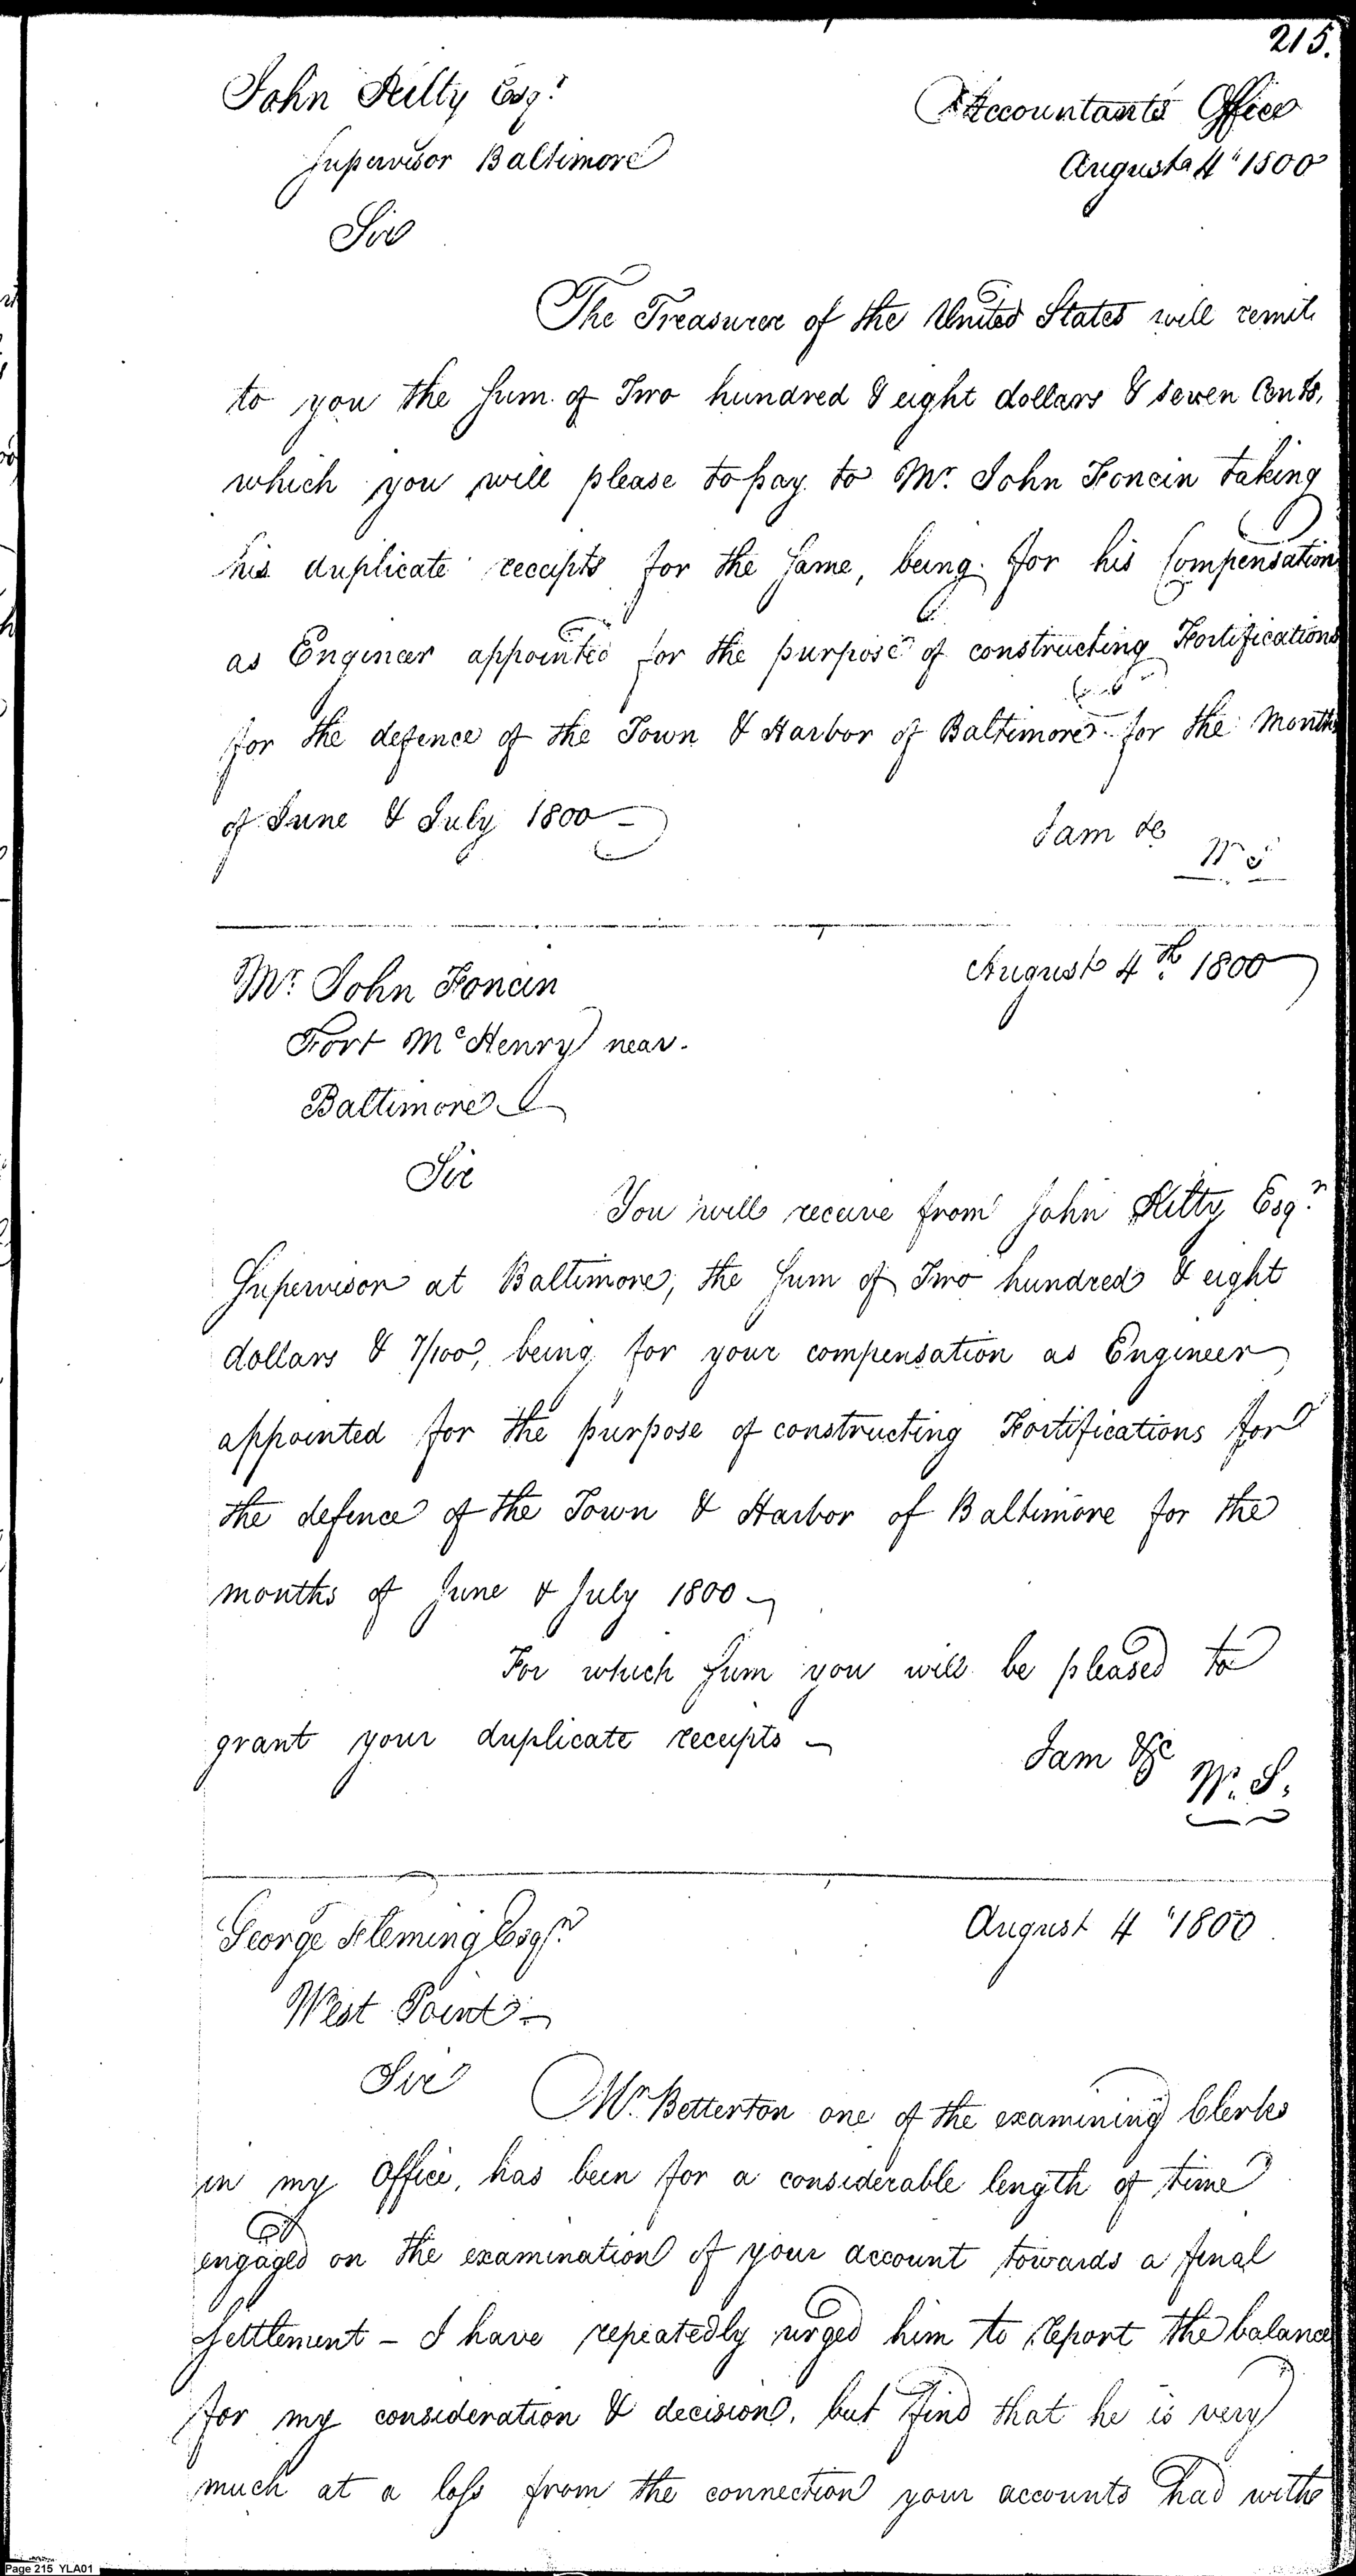 215.
John Kilty Esqr.
Accountants Office
Supervisor Baltimore
August 4" 1800
Sir
The Treasurer of the United States will remit
to you the Sum of Two hundred & eight dollars & seven Cents,
which you will please to pay to Mr. John Foncin taking
his duplicate receipts for the Same, being for his Compensation
as Engineer appointed for the purpose of constructing Fortifications
for the defence of the Town & Harbor of Baltimore for the Months
of June & July 1800
I am &c
W S
Mr. John Foncin
August 4th. 1800
Fort McHenry near
Baltimore
Sir
You will receive from John Kilty Esqr.
Supervisor at Baltimore, the Sum of Two hundred & eight
dollars & 7/100, being for your compensation as Engineer
appointed for the purpose of constructing Fortifications for
the defence of the Town & Harbor of Baltimore for the
months of June & July 1800
For which Sum you will be pleased to
grant your duplicate receipts
I am &c
W. S.
George Fleming Esqr.
August 4" 1800
West Point
Sir
Mr. Betterton one of the examining Clerks
in my Office, has been for a considerable length of time
engaged on the examination of your account towards a final
Settlement - I have repeatedly urged him to report the balance
for my consideration & decision, but find that he is very
much at a loss from the connection your accounts had with
Page 215 YLA01